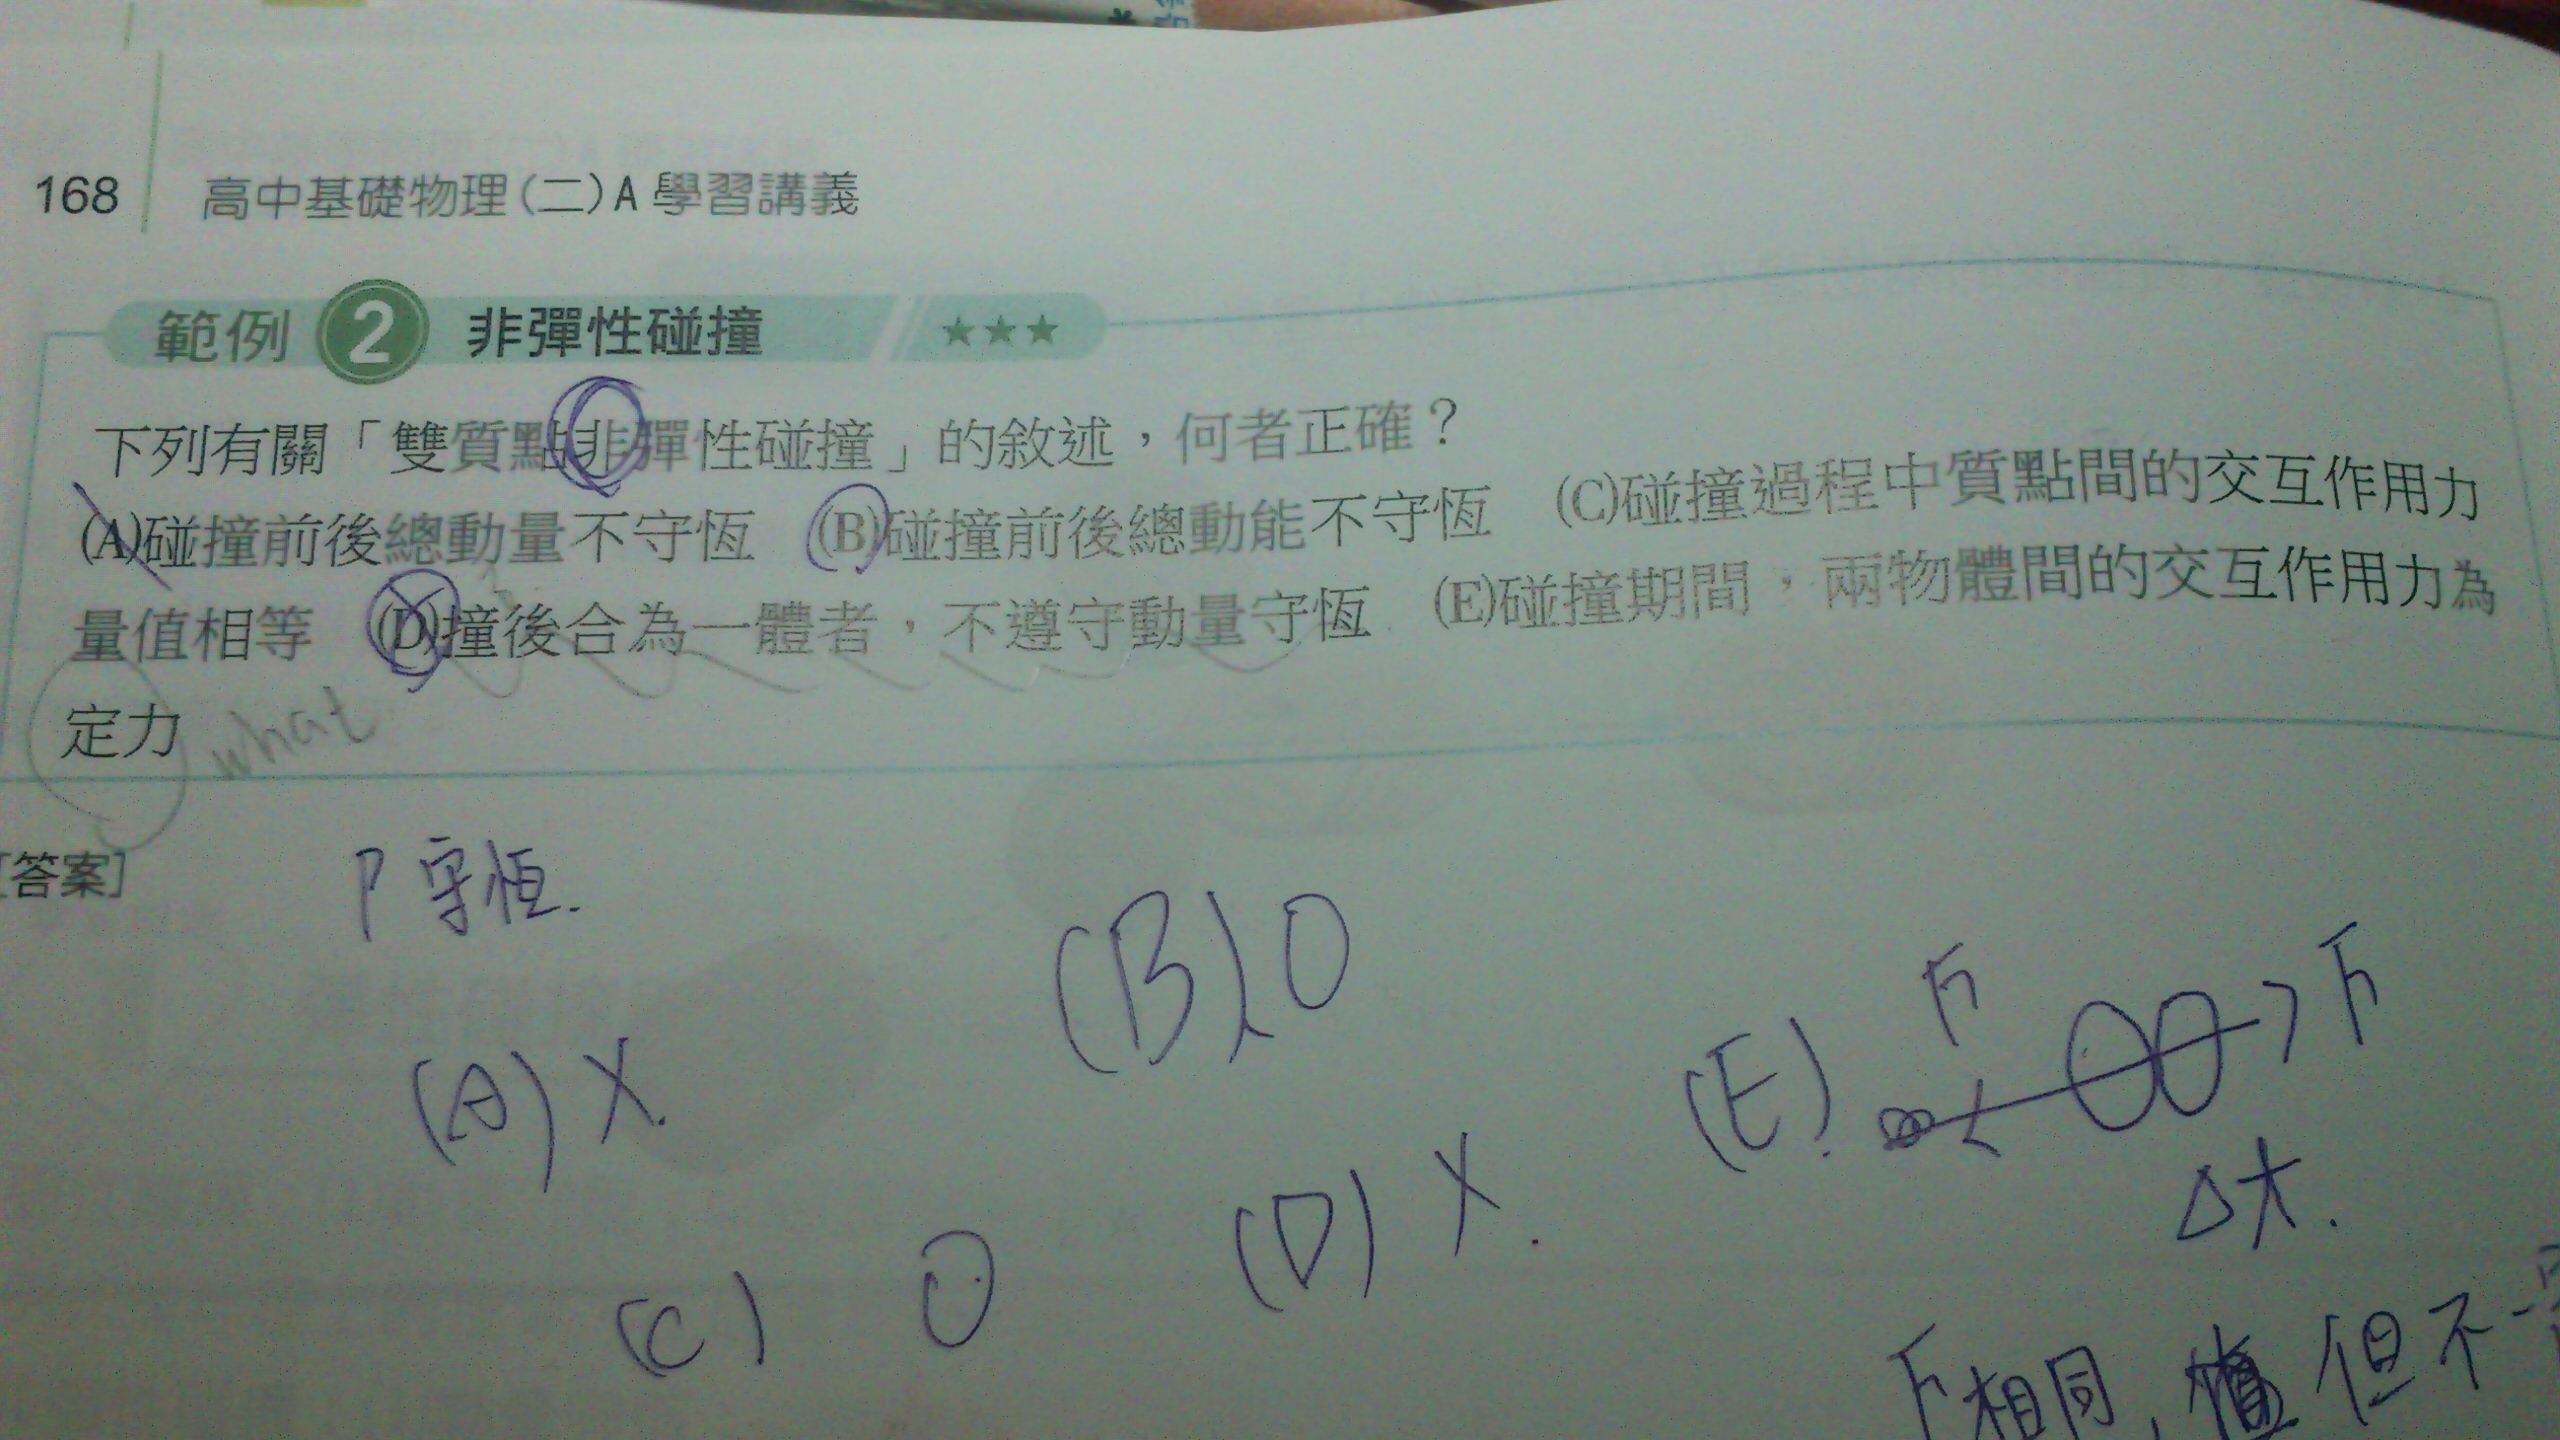 168 高中基礎物理(二)A 學習講義
範例 2 非彈性碰撞 ★★★
下列有關「雙質點非彈性碰撞」的敘述，何者正確？
(A)碰撞前後總動量不守恆 (B)碰撞前後總動能不守恆 (C)碰撞過程中質點間的交互作用力
量值相等 (D)撞後合為一體者，不遵守動量守恆 (E)碰撞期間，兩物體間的交互作用力為
定力 what
[答案] P守恆.
(B) O
(A) X.
(E). F F
Δt.
(C) O
(D) X.
F相同, 但不一